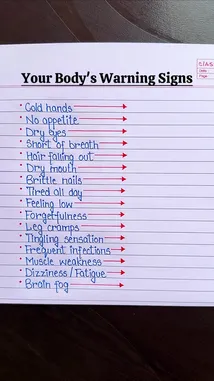 Your Body's Warning Signs
Cold hands
No appetite
Dry eyes
Short of breath
Hair falling out
Dry mouth
Brittle nails
Tired all day
Feeling low
Forgetfulness
Leg cramps
Tingling sensation
Frequent infections
Muscle weakness
Dizziness/Fatigue
Brain fog